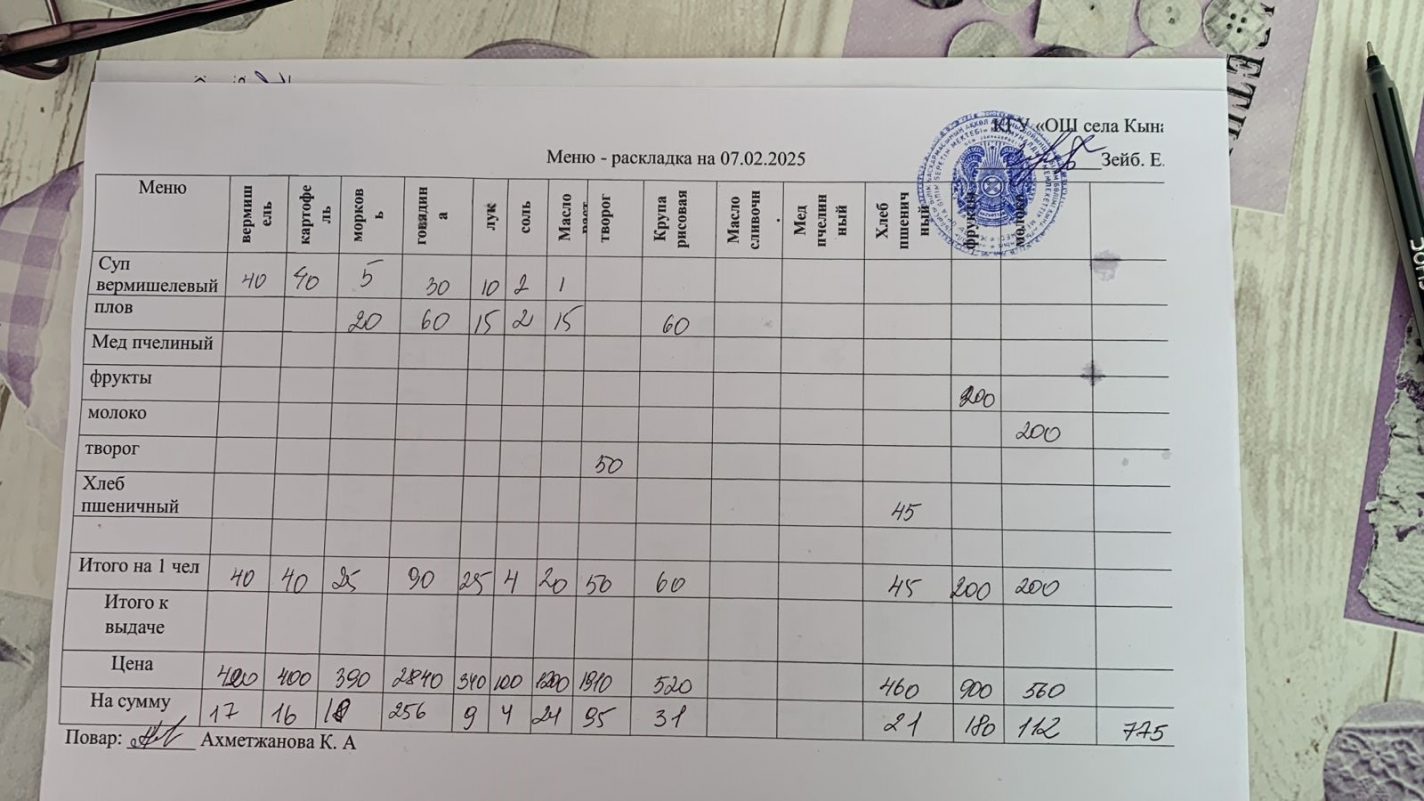 КГУ «ОШ села Кына
Меню - раскладка на 07.02.2025
Зейб. Е.
Меню вермишель картофель морковь говядина лук соль Масло творог Крупа рисовая Масло сливочн. Мед пчелинный Хлеб пшеничный фрукты молоко
Суп вермишелевый 40 40 5 30 10 2 1
плов 20 60 15 2 15 60
Мед пчелиный
фрукты 200
молоко 200
творог 50
Хлеб пшеничный 45
Итого на 1 чел 40 40 25 90 25 4 20 50 60 45 200 200
Итого к выдаче
Цена 400 390 2840 340 100 1200 1910 520 460 900 560
На сумму 17 16 256 9 4 24 95 31 21 180 112 775
Повар: Ахметжанова К. А